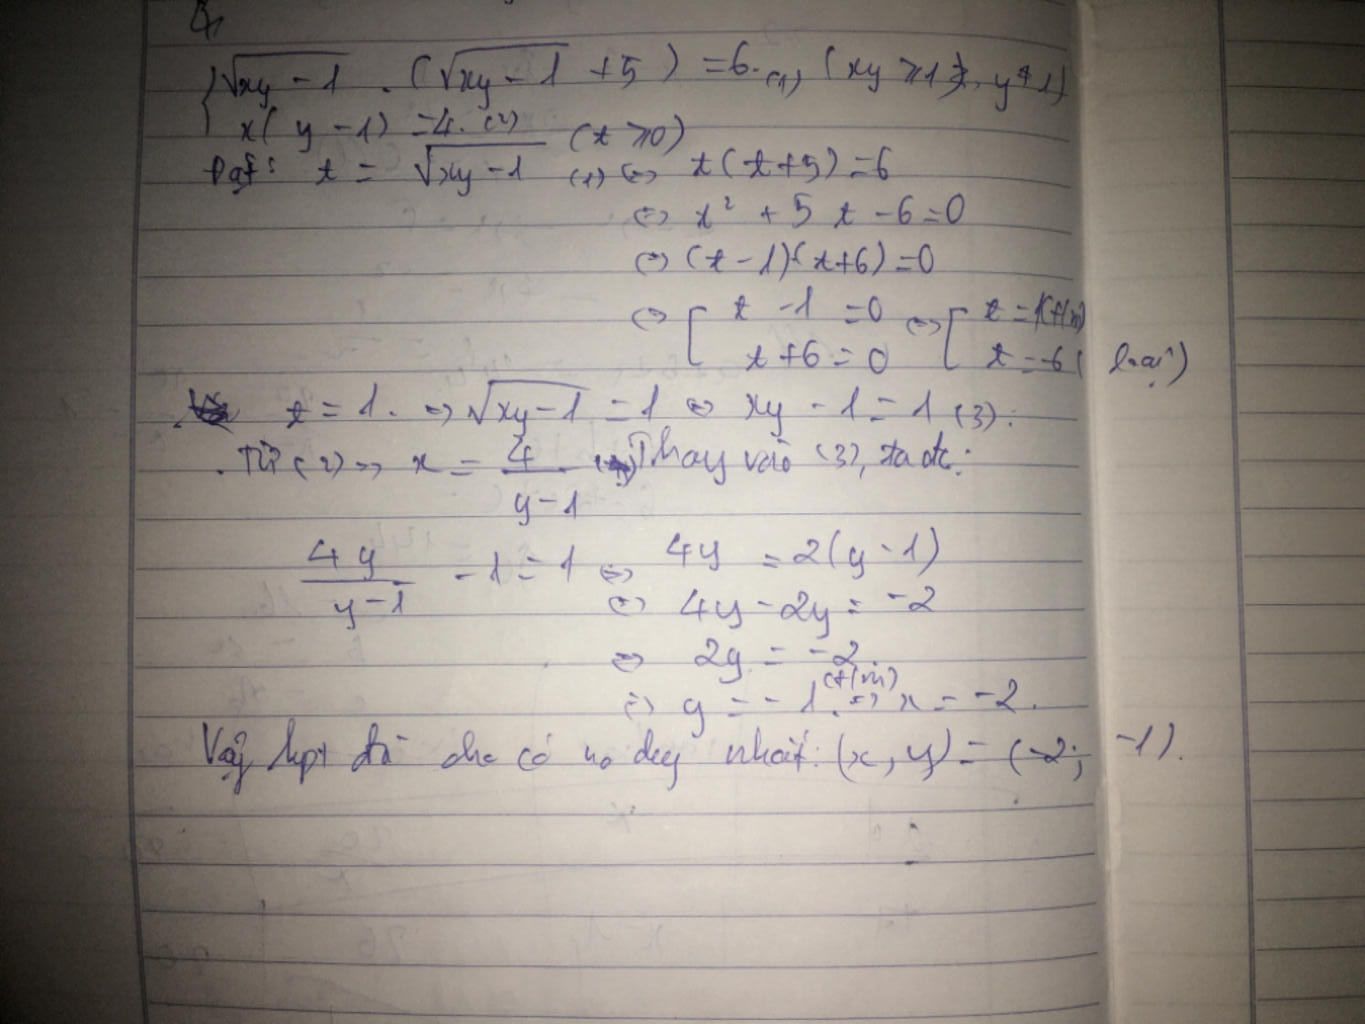 √xy-1 . (√xy-1 +5) =6. (1) (xy ≥1, y≠1)
x(y-1) =4. (2)
Đặt: t = √xy-1 (t ≥0) (1) <=> t(t+5)=6
<=> t² + 5t -6=0
<=> (t-1)(t+6)=0
<=> [ t -1 =0 <=> [ t =1(t/m)
t+6=0 t=-6 (loại)
t=1. => √xy-1 =1 <=> xy -1=1 (3).
. Từ (2) => x = 4/(y-1) Thay vào (3), ta đc:
4y/(y-1) -1=1 <=> 4y =2(y-1)
<=> 4y-2y= -2
<=> 2y = -2
<=> y=-1. (t/m) => x= -2.
Vậy hpt đã cho có no duy nhất: (x, y)= (-2; -1).